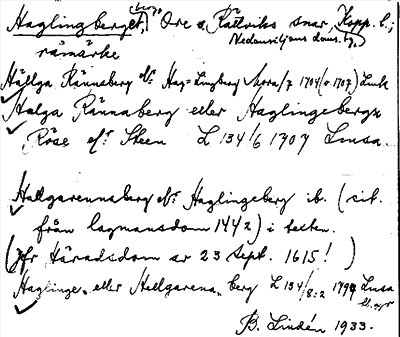 Haglingberget, Ore o. Rättviks snar, Kopp. l.;
råmärke
Hällga Rännaberg el. Hag=Lingberg 1704 (o. 1707) Lmh
Halga Rännaberg eller Haglingebergz
Röse el. Steen L 134/6 1707 Lmsa.
Hallgarennaberg el. Haglingeberg ib. (cit.
från lagmansdom 1442) i texten.
(Jfr Häradsdom av 23 sept. 1615! )
Haglinge- eller Hallgarena- berg L 134/8:2 Lmsa
B. Lindén 1933.